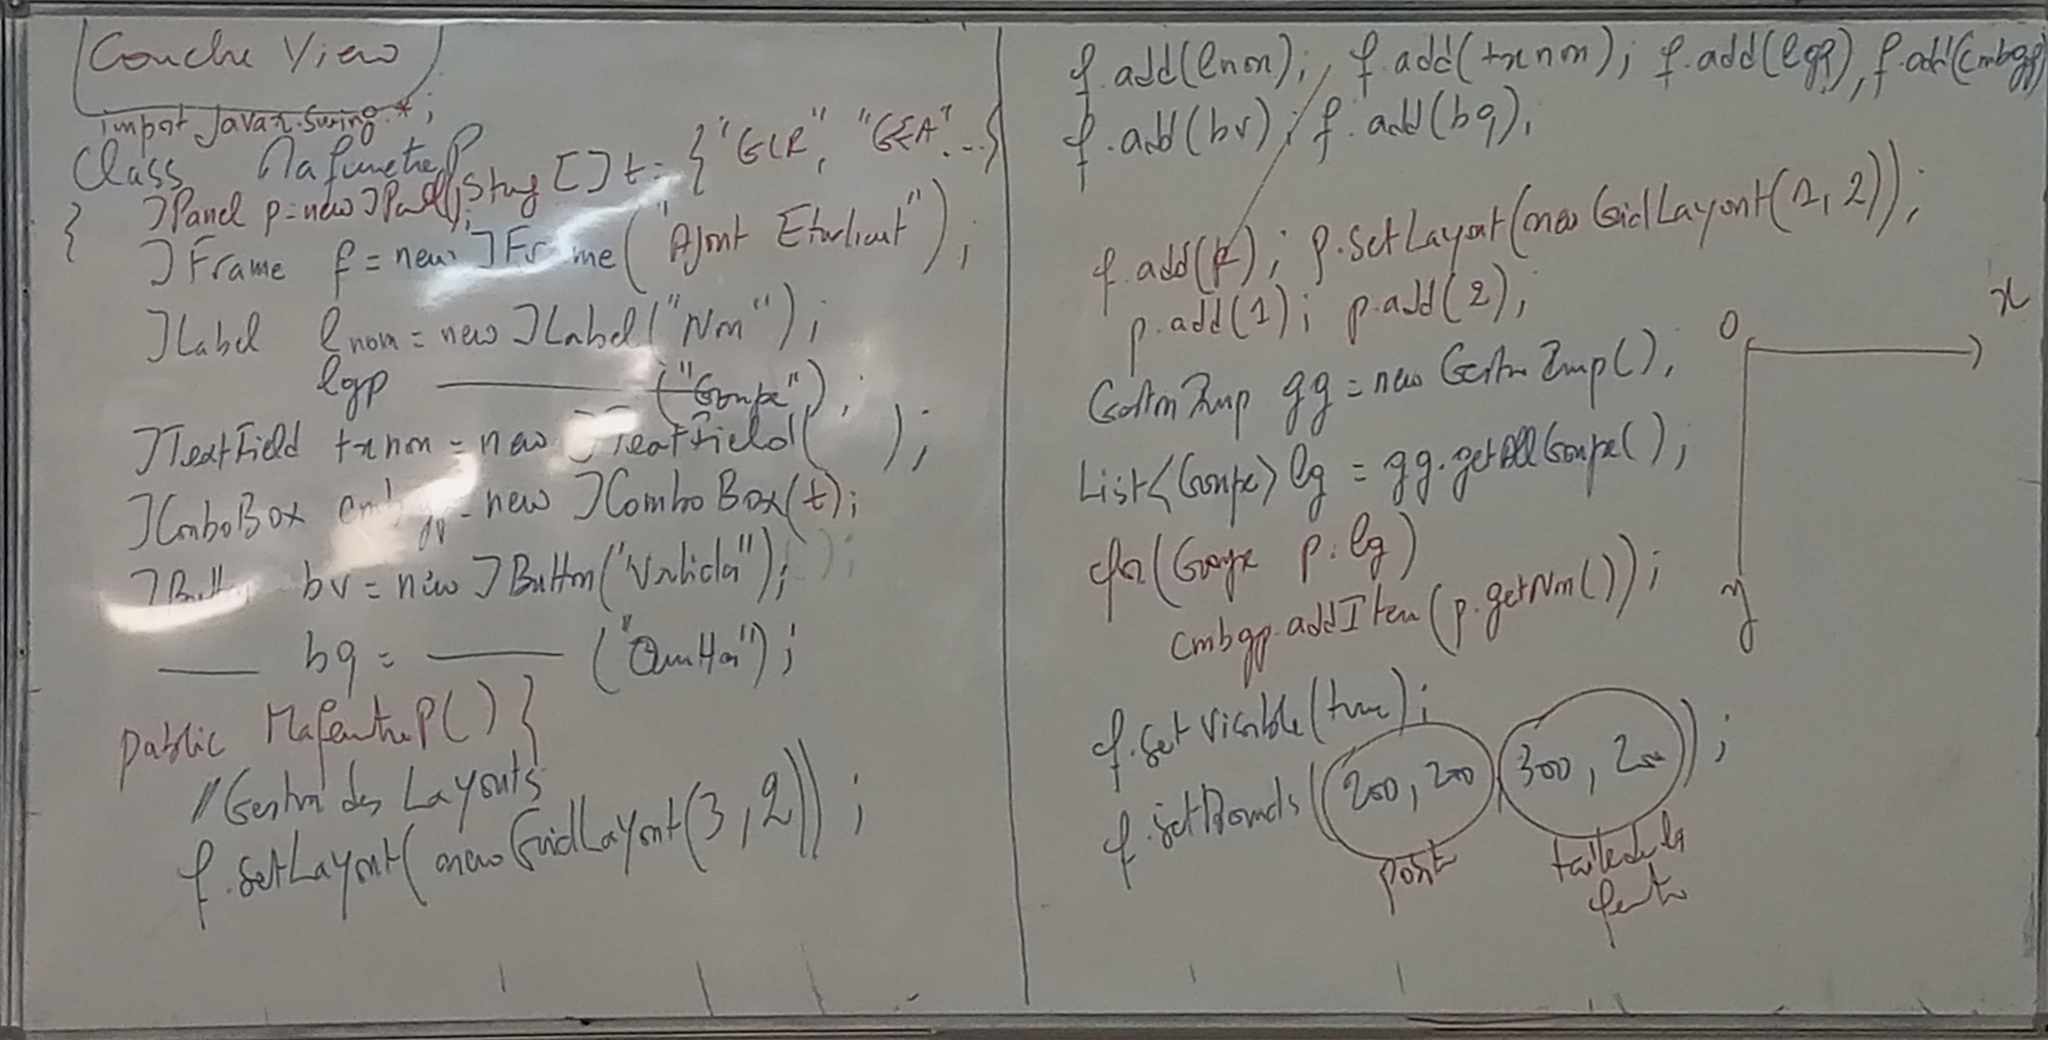 Couche View
import Javax.swing.*;
Class MafenetreP
{ JPanel p=new JPanel(); String []t={"GLR", "GEA"...}
JFrame f = new JFrame("Ajout Etudiant");
JLabel lnom = new JLabel("Nom");
lgp ——— ("Groupe");
JTextField txnom = new JTextField( );
JComboBox cmbgp = new JComboBox(t);
JButton bv = new JButton("Valider");
—— bq = —— ("Quitter");
public MafenetreP() {
//Gestion des Layouts
f.setLayout(new GridLayout(3,2));
f.add(lnom); f.add(txnom); f.add(lgp), f.add(cmbgp)
f.add(bv); f.add(bq);
f.add(p); p.setLayout(new GridLayout(1,2));
p.add(1); p.add(2);
GestionImp gg = new GestionImp();
List<Groupe> lg = gg.getAllGroupe();
for(Groupe p:lg)
cmbgp.addItem(p.getNom());
f.setVisible(true);
f.setBounds(200, 200, 300, 200);
point
taille de la
fenetre
O
x
y